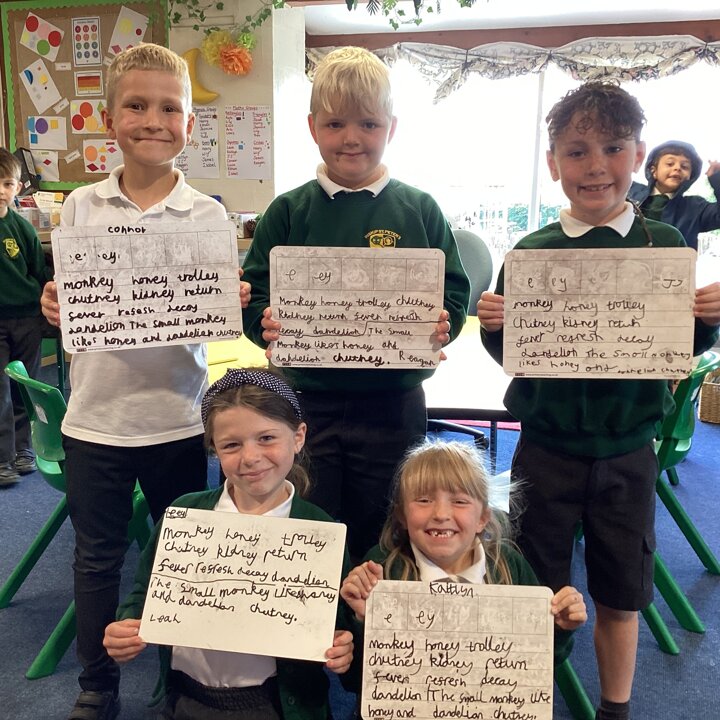 Connor
e ey
monkey honey trolley
chutney kidney return
fever resesh decay
dandelion The small monkey
likes honey and dandelion chutney
e ey
Monkey honey trolley chutney
kidney return fever refresh
decay dandelion The small
Monkey likes honey and
dandelion chutney. Reagan
e ey
monkey honey trolley
chutney kidney return
fever refresh decay
dandelion The small monkey
likes honey and chutney
Monkey honey trolley
Chutney kidney return
fever resresh decay dandelion
The small monkey likes honey
and dandelion chutney.
Leah
Kaitlyn
e ey
monkey honey trolley
chutney kidney return
fever resresh decay
dandelion The small monkey like
honey and dandelion chutney